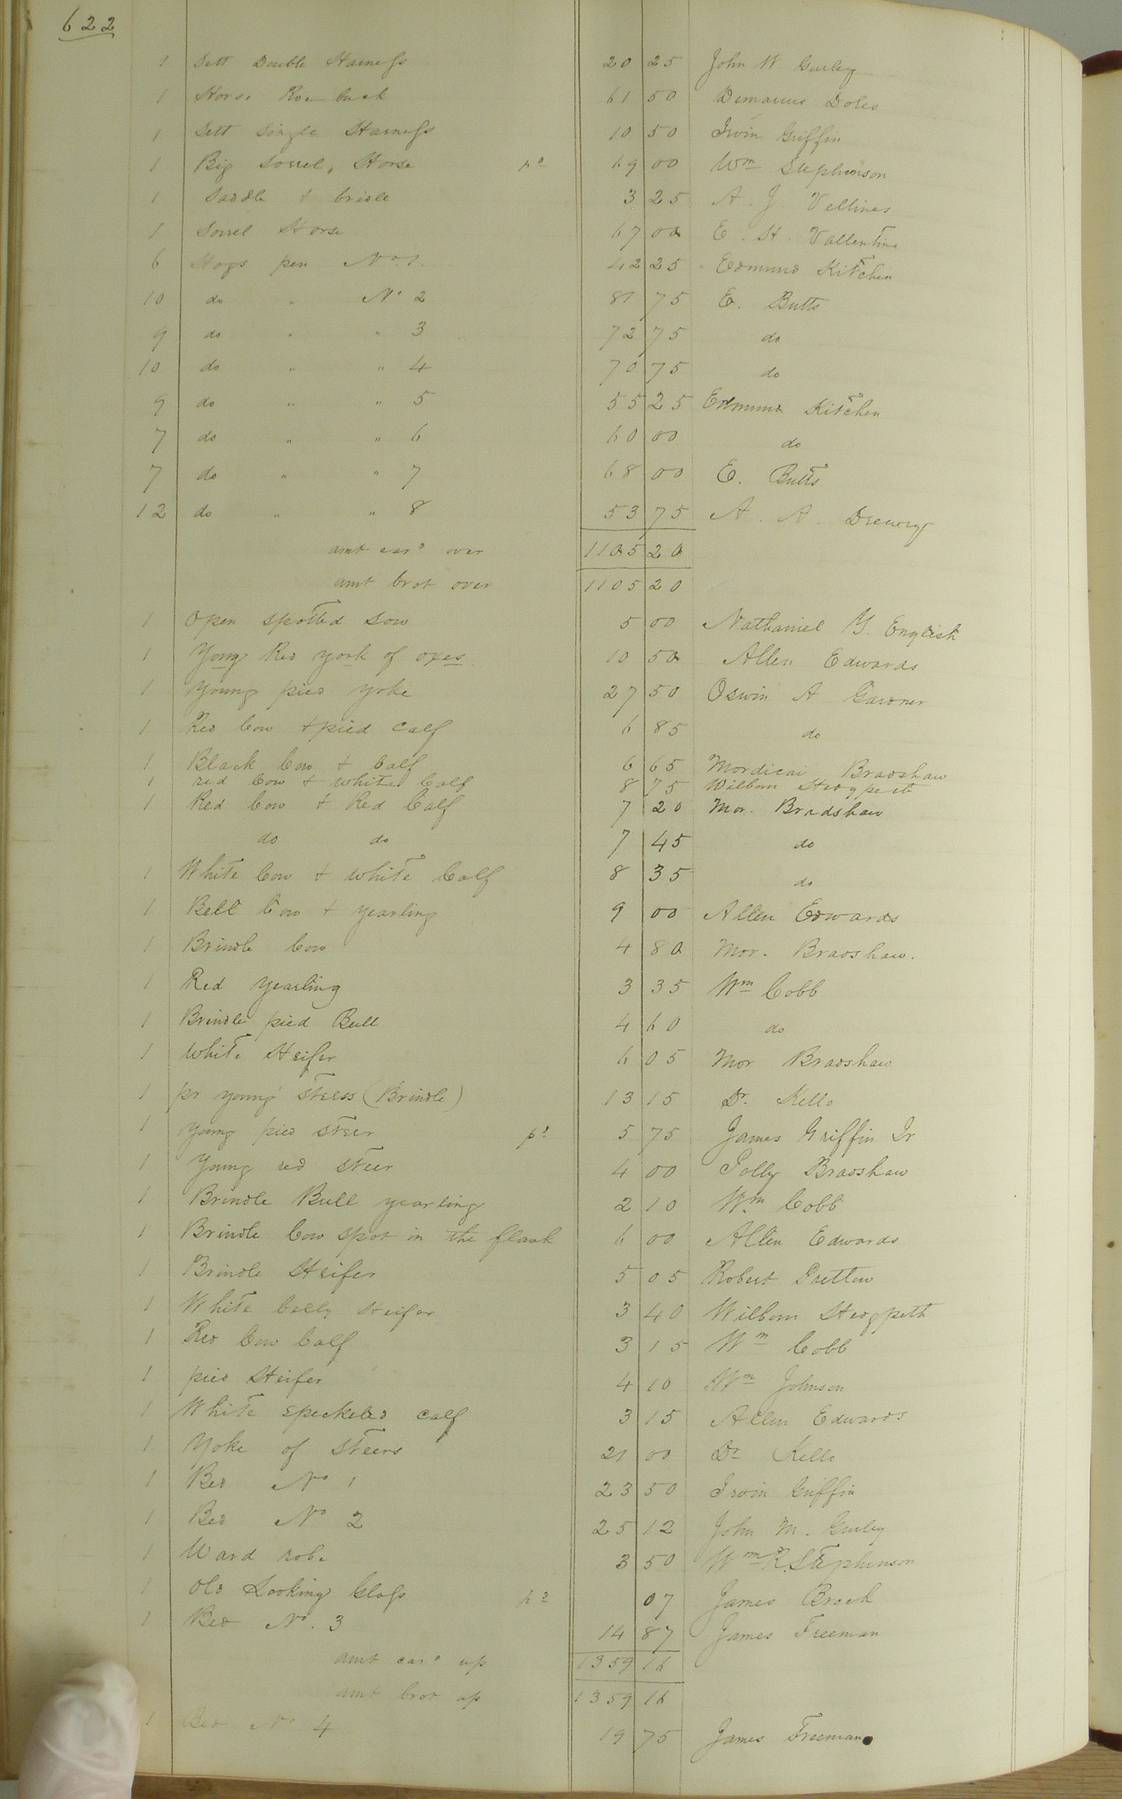 622
1 Sett Double Harness 20 25 John W Gurley
1 Horse Roebuck 61 50 Demarcus Doles
1 Sett Single Harness 10 50 Irvin Griffin
1 Big Sorrel, Horse pd 69 00 Wm Stephenson
1 Saddle & bridle 3 25 A. J Vellines
1 Sorrel Horse 67 00 E. H. Vallentine
6 Hogs pen No 1 42 25 Edmund Kitchen
10 do " No 2 87 75 E. Butts
9 do " " 3 72 75 do
10 do " " 4 70 75 do
9 do " " 5 55 25 Edmund Kitchen
7 do " " 6 60 00 do
7 do " " 7 68 00 E. Butts
12 do " " 8 53 75 A. A. Drewry
amt card over 1105 20
amt brot over 1105 20
1 Open spotted Sow 5 00 Nathaniel G. English
1 Yong Red york of oxes 10 50 Allen Edwards
1 Young pied yoke 27 50 Oswin A Gardner
1 Red Cow & pied Calf 6 85 do
1 Black Cow & Calf 6 65 Mordicai Bradshaw
1 red Cow & white Calf 8 75 Wilborn Hedgpeth
1 Red Cow & Red Calf 7 20 Mor. Bradshaw
do do 7 45 do
1 White Cow & white Calf 8 35 do
1 Bell Cow & yearling 9 00 Allen Edwards
1 Brindle Cow 4 80 Mor. Bradshaw.
1 Red yearling 3 35 Wm Cobb
1 Brindle pied Bull 4 60 do
1 White Heifer 6 05 Mor Bradshaw
1 pr young steers (Brindle) 13 15 Dr. Kello
1 Young pied steer pd 5 75 James Griffin Jr
1 Young red steer 4 00 Polly Bradshaw
1 Brindle Bull yearling 2 10 Wm Cobb
1 Brindle Cow spot in the flank 6 00 Allen Edwards
1 Brindle Heifer 5 05 Robert
1 White belly Heifer 3 40 Wilborn Hedgpeth
1 Red Cow Calf 3 15 Wm Cobb
1 pied Heifer 4 10 Wm Johnson
1 White speckeled calf 3 15 Allen Edwards
1 Yoke of steers 21 00 Dr Kello
1 Bed No 1 23 50 Irvin Griffin
1 Bed No 2 25 12 John M. Gurley
1 Ward robe 3 50 Wm R. Stephenson
1 Old Looking Glass pd 07 James Brock
1 Bed No. 3 14 87 James Freeman
amt card up 1359 16
amt brot up 1359 16
1 Bed No 4 19 75 James Freeman